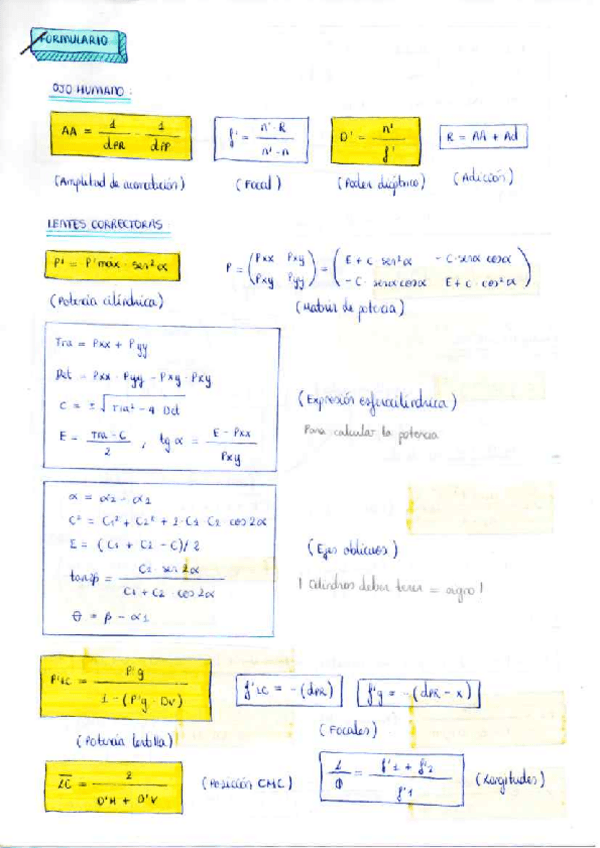 FORMULARIO
OJO HUMANO:
AA = 1/dPR - 1/dPP
f' = n'·R / n'-n
D' = n'/f'
R = AA + Ad
(Amplitud de acomodación) (Focal) (Poder dióptrico) (Adicción)
LENTES CORRECTORAS:
P' = P'max · sen²α
P = (Pxx Pxy / Pxy Pyy) = (E + C sen²α - C·senα cosα / - C· senα cosα E + C · cos²α)
(Potencia cilíndrica) (Matriz de potencia)
Tra = Pxx + Pyy
Det = Pxx · Pyy - Pxy · Pxy
C = ±√Tra² - 4 Det
E = Tra - C / 2 , tg α = E - Pxx / Pxy
(Expresión esferocilíndrica)
Para calcular la potencia
α = α2 - α1
C² = C1² + C2² + 2·C1·C2 cos 2α
E = (C1 + C2 - C)/2
tan2β = C2 · sen 2α / C1 + C2 · cos 2α
θ = β - α1
(Ejes oblicuos)
! Cilindros deben tener = signo !
P'LC = P'g / 1 - (P'g · Dv)
f'LC = - (dPR)
f'g = - (dPR - x)
(Potencia lentilla) (Focales)
ZC = 2 / D'H + D'V
(Posición CMC)
1/Φ = f'1 + f'2 / f'1
(Longitudes)